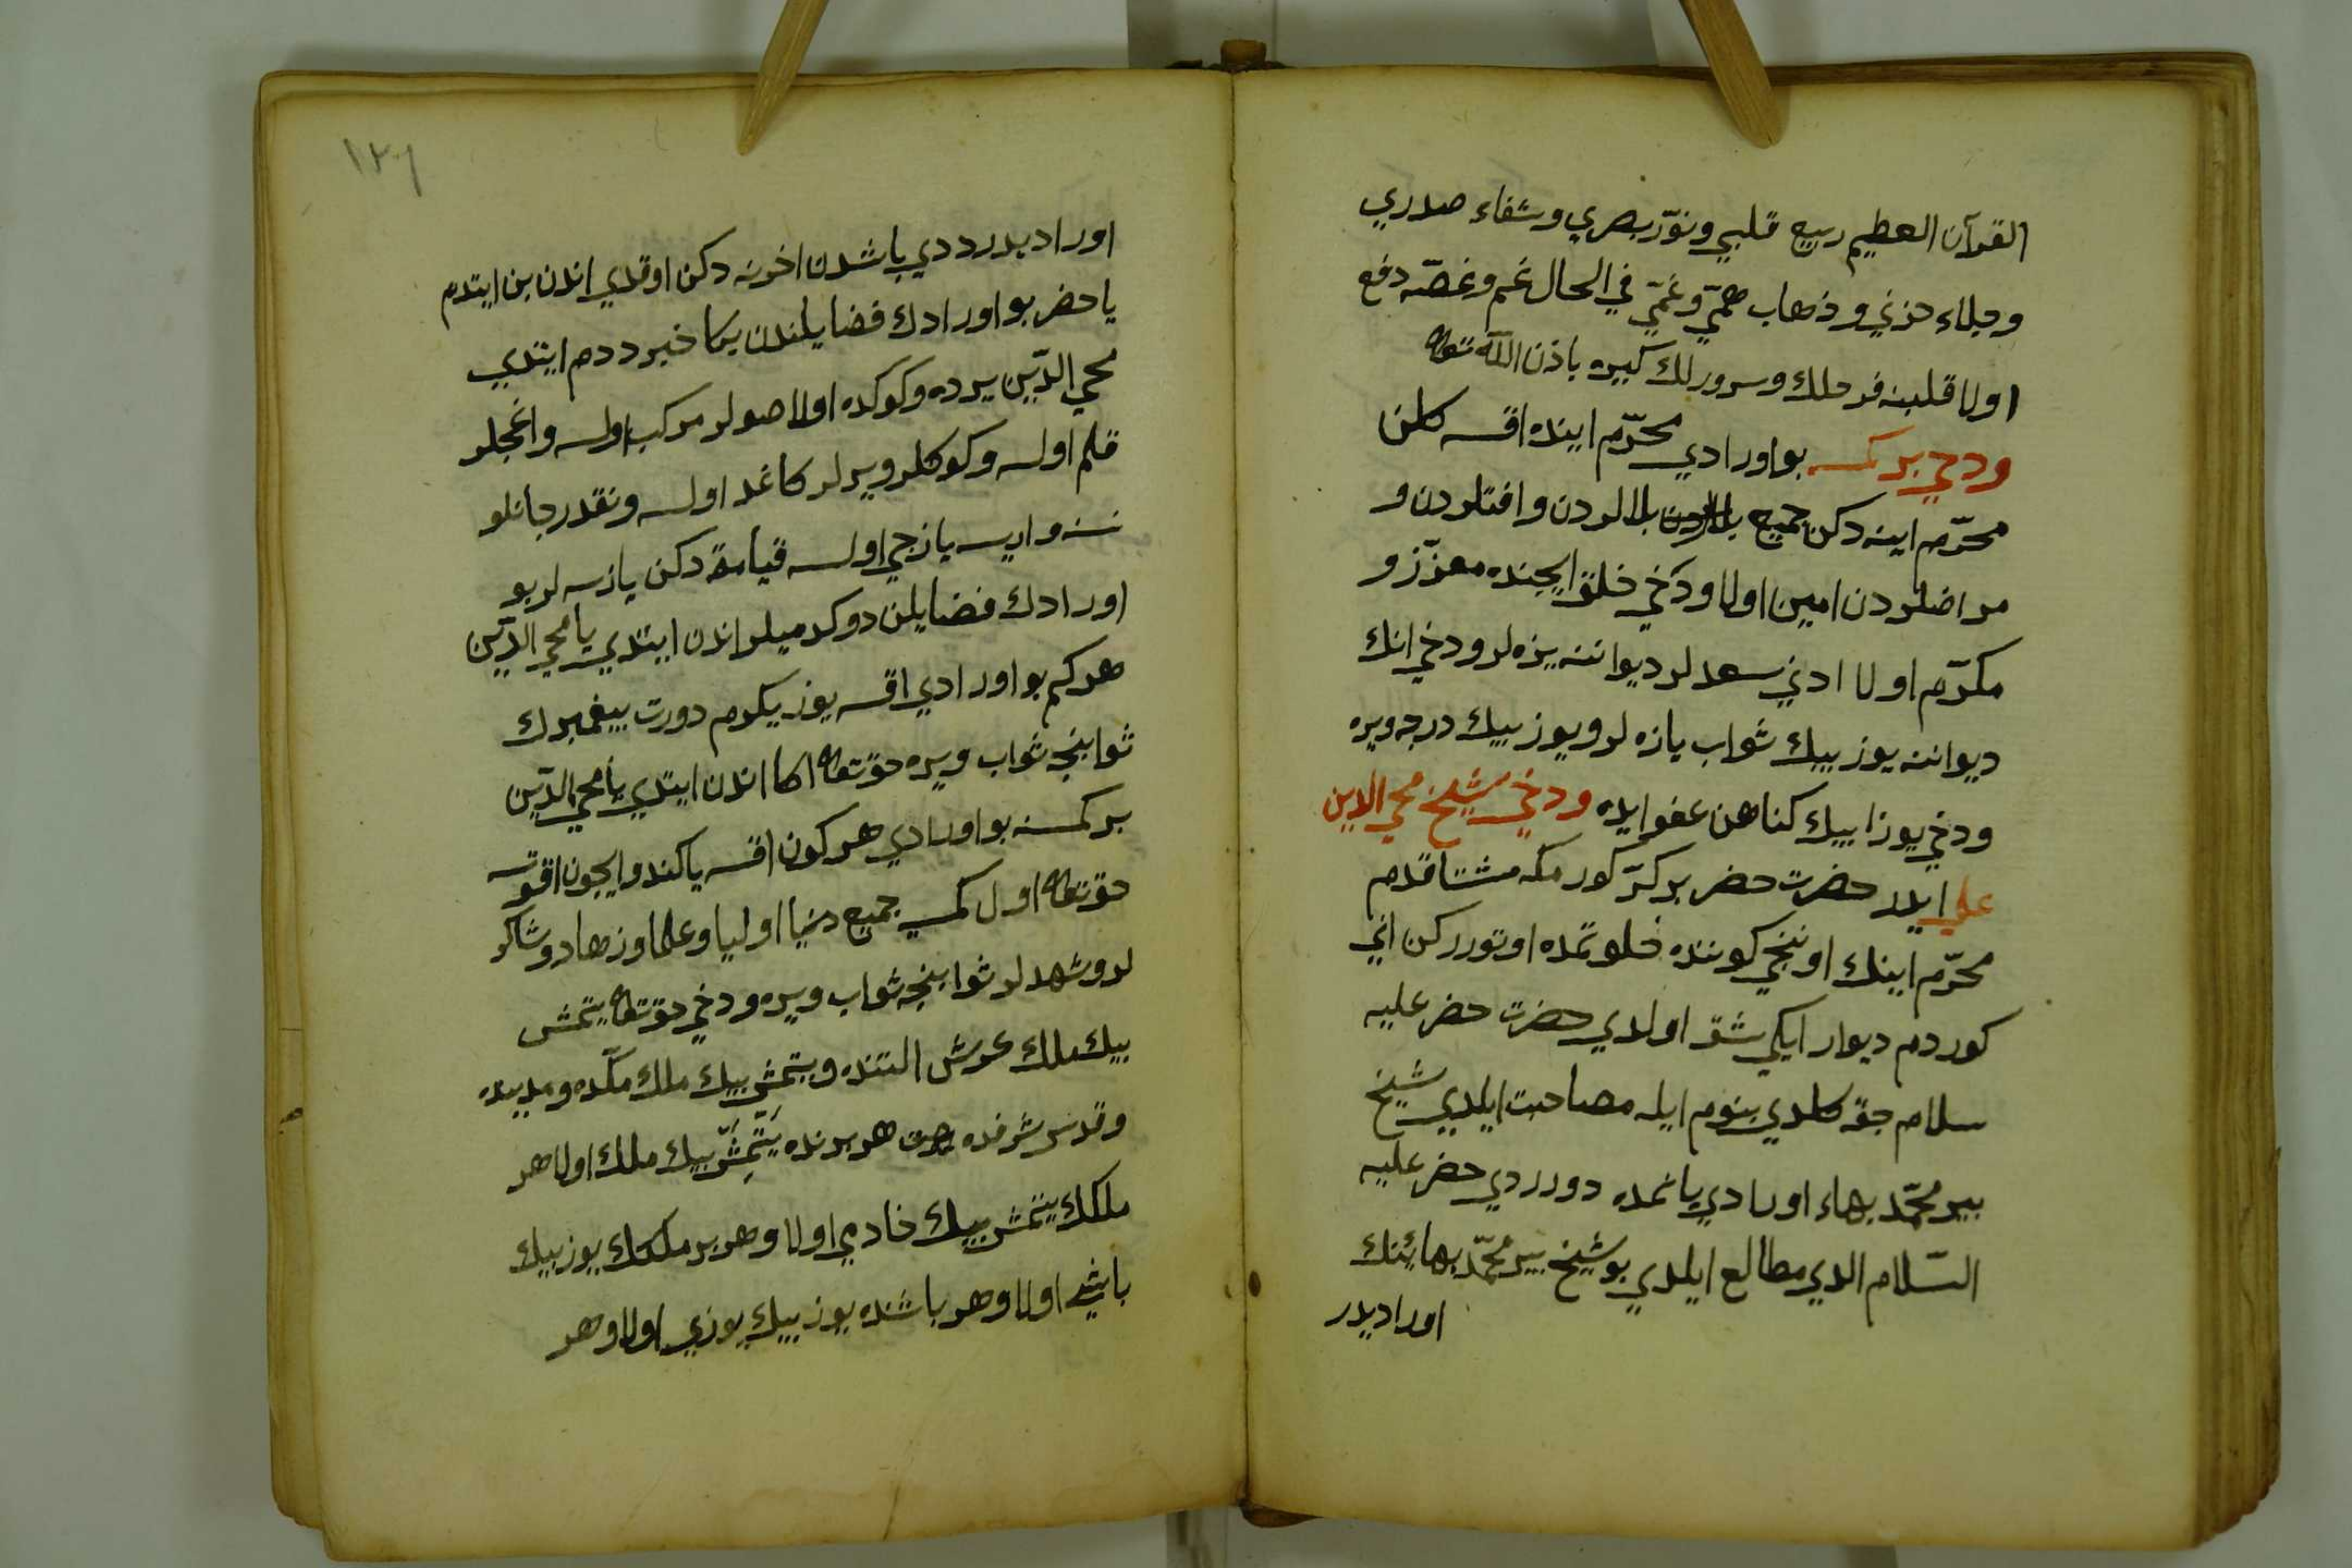 القرآن العظيم ربيع قلبي ونوّر بصري وشفاء صدري
وجلاء حزني وذهاب همّي وغمّي في الحال غم وغصّه دفع
اولا قلبنه فرحلك وسرورلك كيره باذن اللّه تعالى
ودخي بر كمسه بو اورادي محرّم اينده اقسه كلن
محرّم اينه دكن جميع بلالردن وافتلردن و
مراضلردن امين اولا ودخي خلق ايچنده معزّز و
مكرّم اولا ادني سعدلر ديواننه يزه لر ودخي انك
ديواننه يوز بيك ثواب يازه لر ويوز بيك درجه ويره
ودخي يوز ابيك كناهن عفو ايده ودخي شيخ محي الدين
علي ايدر حضرت حضر بر كز كورمكه مشتاقدم
محرّم اينك اوننجي كوننده خلوتمده اوتوررکن اني
كوردم ديوار ايكي شق اولدي حضرت حضر عليه
سلام چقه كلدي بنوم ايله مصاحبت ايلدي شيخ
بير محمّد بهاء اورادي يانمده دورردي حضر عليه
السّلام الدي مطالع ايلدي بو شيخ بير محمّد بهائنك
اوراديدر
١٢٦
اوراديدر ددي باشدن اخرنه دكن اوقدي اندن بن ايتدم
يا حضر بو اورادك فضايلندن بكا خبر ددم ايتدي
محي الدّين يرده وكوكده اولا صولر مركب اولسه واغجلر
قلم اولسه وكوكلر ويرلر كاغد اولسه ونقدر جانلو
نسنه واريسه يازجي اولسه قيامة دكن يازسه لر بو
اورادك فضايلن دوكدميلر اندن ايتدي يا محي الدّين
هركم بو اورادي اقسه يوز يكرم دورت بيغمبرك
ثوابنجه ثواب ويره حق تعالى اكا اندن ايتدي يا محي الدّين
بر كمسنه بو اورادي هركون اقسه يا كندو ايچون اقوتسه
حق تعالى اول كمسيه جميع دنيا اوليا وعلما وزهاد وشاكر
لر وشهدلر ثوابنجه ثواب ويره ودخي حق تعالى يتمش
بيك ملك عرش التنده ويتمش بيك ملك مكّه ده ومدينده
وقدس شرفده هر برنده يتمش بيك ملك اولا هر
ملكك يتمش بيك خادمي اولا وهر بر ملكك يوز بيك
باشي اولا وهر باشنده يوز بيك يوزي اولا وهر